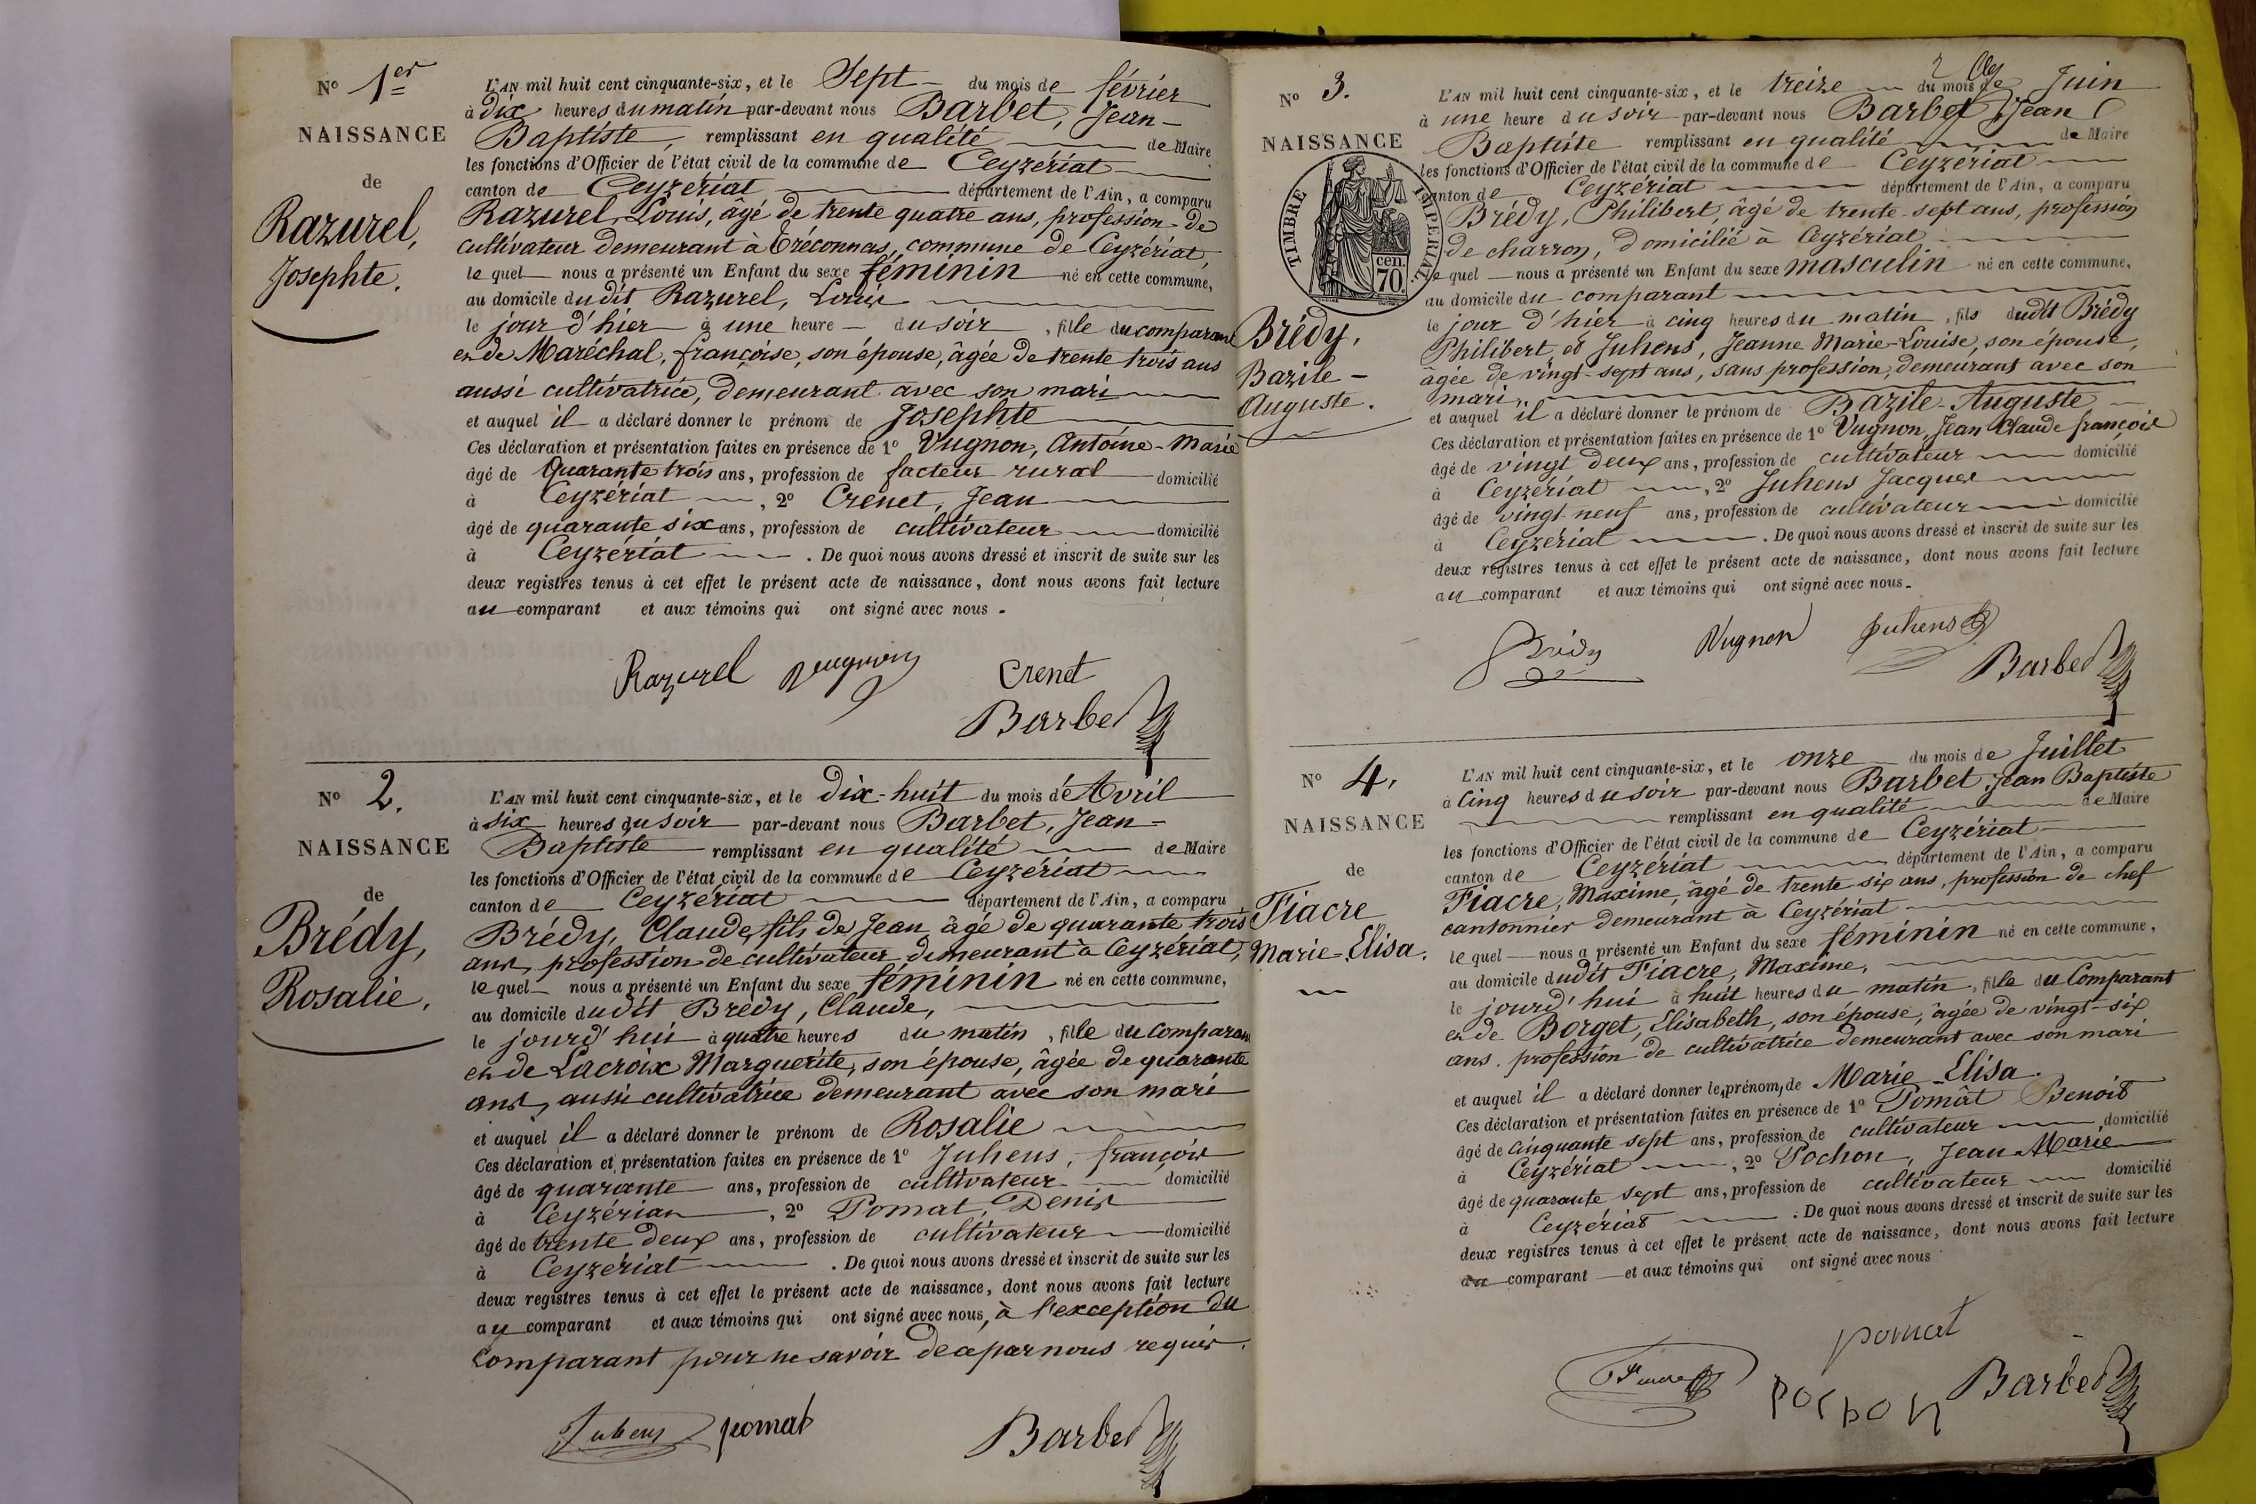 N° 1er
NAISSANCE
de
Razurel,
Josephte.
L'AN mil huit cent cinquante-six, et le Sept du mois de février
à dix heures du matin par-devant nous Barbet, Jean-
Baptiste, remplissant en qualité de Maire
les fonctions d'Officier de l'état civil de la commune de Ceyzériat
canton de Ceyzériat département de l'Ain, a comparu
Razurel, Louis, âgé de trente quatre ans, profession de
cultivateur demeurant à Tréconnas, commune de Ceyzériat,
lequel nous a présenté un Enfant du sexe féminin né en cette commune,
au domicile dudit Razurel, Louis
le jour d'hier à une heure du soir, fille du comparant
et de Maréchal, françoise, son épouse, âgée de trente trois ans
aussi cultivatrice, demeurant avec son mari
et auquel il a déclaré donner le prénom de Josephte
Ces déclaration et présentation faites en présence de 1° Vugnon, Antoine-Marie
âgé de Quarante trois ans, profession de facteur rural domicilié
à Ceyzériat, 2° Crenet, Jean
âgé de quarante six ans, profession de cultivateur domicilié
à Ceyzériat. De quoi nous avons dressé et inscrit de suite sur les
deux registres tenus à cet effet le présent acte de naissance, dont nous avons fait lecture
au comparant et aux témoins qui ont signé avec nous.
Razurel Vugnon Crenet
Barbet
N° 2.
NAISSANCE
de
Brédy,
Rosalie.
L'AN mil huit cent cinquante-six, et le dix-huit du mois d'Avril
à six heures du soir par-devant nous Barbet, Jean-
Baptiste remplissant en qualité de Maire
les fonctions d'Officier de l'état civil de la commune de Ceyzériat
canton de Ceyzériat département de l'Ain, a comparu
Brédy, Claude, fils de Jean âgé de quarante trois
ans, profession de cultivateur demeurant à Ceyzériat,
lequel nous a présenté un Enfant du sexe féminin né en cette commune,
au domicile dudit Brédy, Claude,
le jourd'hui à quatre heures du matin, fille du comparant
et de Lacroix Marguerite, son épouse, âgée de quarante
ans, aussi cultivatrice demeurant avec son mari
et auquel il a déclaré donner le prénom de Rosalie
Ces déclaration et présentation faites en présence de 1° Juhens, françois
âgé de quarante ans, profession de cultivateur domicilié
à Ceyzérian, 2° Pomat, Denis
âgé de trente deux ans, profession de cultivateur domicilié
à Ceyzériat. De quoi nous avons dressé et inscrit de suite sur les
deux registres tenus à cet effet le présent acte de naissance, dont nous avons fait lecture
au comparant et aux témoins qui ont signé avec nous, à l'exception du
comparant pour ne savoir de ce par nous requis.
Juhens pomat Barbet
N° 3.
NAISSANCE
TIMBRE IMPÉRIAL
70 cen.
Brédy,
Bazile-
Auguste.
L'AN mil huit cent cinquante-six, et le treize du mois de Juin
à une heure du soir par-devant nous Barbet Jean
Baptiste remplissant en qualité de Maire
les fonctions d'Officier de l'état civil de la commune de Ceyzériat
canton de Ceyzériat département de l'Ain, a comparu
Brédy, Philibert, âgé de trente-sept ans, profession
de charron, domicilié à Ceyzériat
lequel nous a présenté un Enfant du sexe masculin né en cette commune,
au domicile du comparant
le jour d'hier à cinq heures du matin, fils dudit Brédy
Philibert et Juhens, Jeanne Marie-Louise, son épouse,
âgée de vingt-sept ans, sans profession, demeurant avec son
mari,
et auquel il a déclaré donner le prénom de Bazile-Auguste
Ces déclaration et présentation faites en présence de 1° Vugnon, Jean Claude françois
âgé de vingt deux ans, profession de cultivateur domicilié
à Ceyzériat, 2° Juhens Jacques
âgé de vingt neuf ans, profession de cultivateur domicilié
à Ceyzériat. De quoi nous avons dressé et inscrit de suite sur les
deux registres tenus à cet effet le présent acte de naissance, dont nous avons fait lecture
au comparant et aux témoins qui ont signé avec nous.
Brédy Vugnon Juhens
Barbet
N° 4.
NAISSANCE
de
Fiacre
Marie-Elisa.
L'AN mil huit cent cinquante-six, et le onze du mois de Juillet
à cinq heures du soir par-devant nous Barbet Jean Baptiste
remplissant en qualité de Maire
les fonctions d'Officier de l'état civil de la commune de Ceyzériat
canton de Ceyzériat département de l'Ain, a comparu
Fiacre, Maxime, âgé de trente six ans, profession de chef
cantonnier demeurant à Ceyzériat
lequel nous a présenté un Enfant du sexe féminin né en cette commune,
au domicile dudit Fiacre, Maxime,
le jourd'hui à huit heures du matin, fille du Comparant
et de Borget, Elisabeth, son épouse, âgée de vingt-six
ans, profession de cultivatrice demeurant avec son mari
et auquel il a déclaré donner les prénoms de Marie-Elisa.
Ces déclaration et présentation faites en présence de 1° Pomat Benoit
âgé de cinquante sept ans, profession de cultivateur domicilié
à Ceyzériat, 2° Pochon, Jean Marie
âgé de quarante sept ans, profession de cultivateur domicilié
à Ceyzériat. De quoi nous avons dressé et inscrit de suite sur les
deux registres tenus à cet effet le présent acte de naissance, dont nous avons fait lecture
au comparant et aux témoins qui ont signé avec nous
pomat
Fiacre pochon Barbet